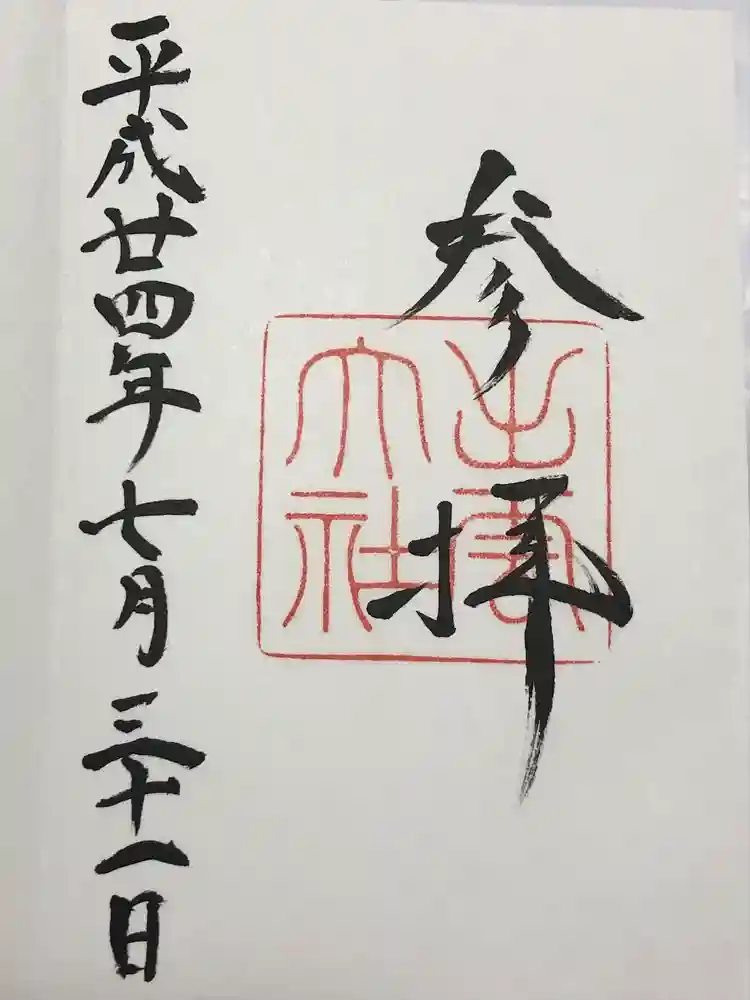 参拝
出雲
大社
平成廿四年七月三十一日